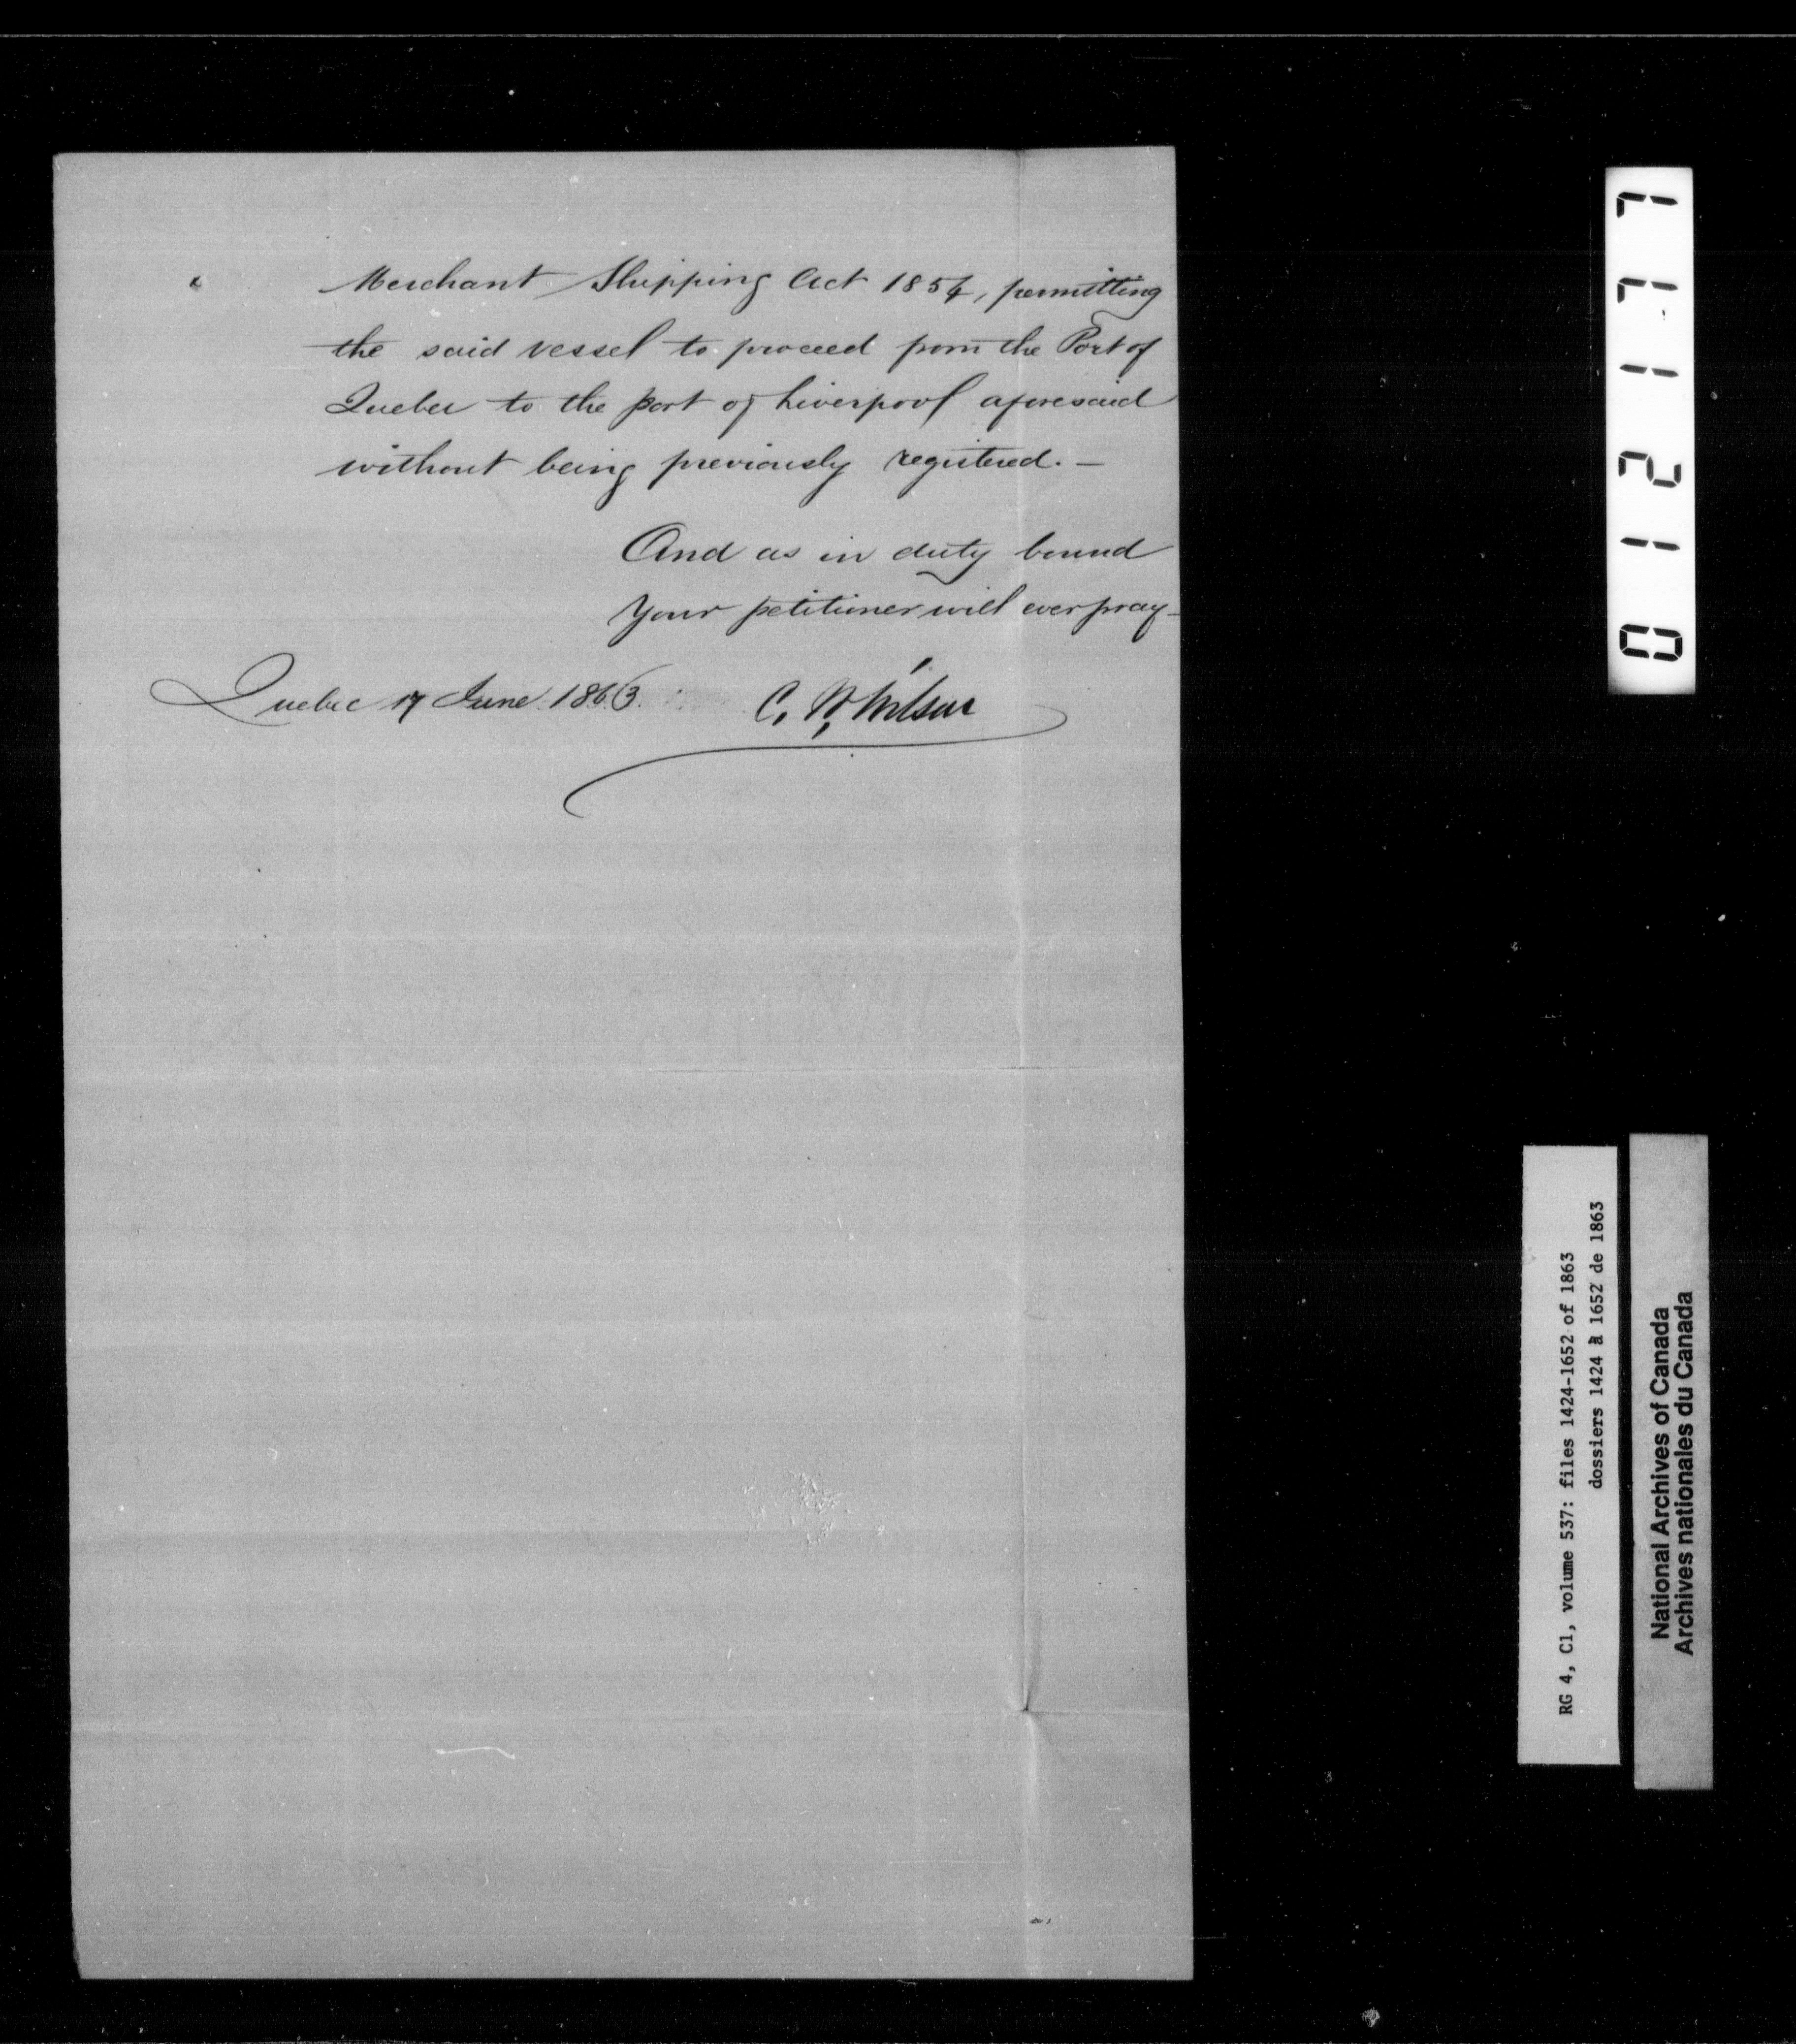 Merchant Shipping Act 1854, permitting
the said vessel to proceed from the Port of
Quebec to the port of Liverpool aforesaid
without being previously registered. —
And as in duty bound
Your petitioner will ever pray —
Quebec 17 June 1863.
C. W. Wilson
012177
RG 4, C1, volume 537: files 1424-1652 of 1863
dossiers 1424 à 1652 de 1863
National Archives of Canada
Archives nationales du Canada